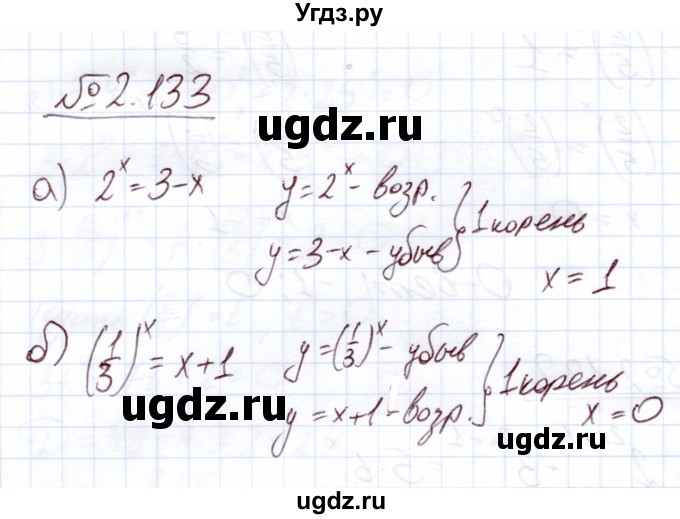 Угдз.ру
№ 2.133
ugdz.ru
а) 2^x = 3 - x y = 2^x - возр. } 1 корень
y = 3 - x - убыв
x = 1
ugdz.ru
б) (1/3)^x = x + 1 y = (1/3)^x - убыв } 1 корень
y = x + 1 - возр. x = 0
ugdz.ru
ugdz.ru